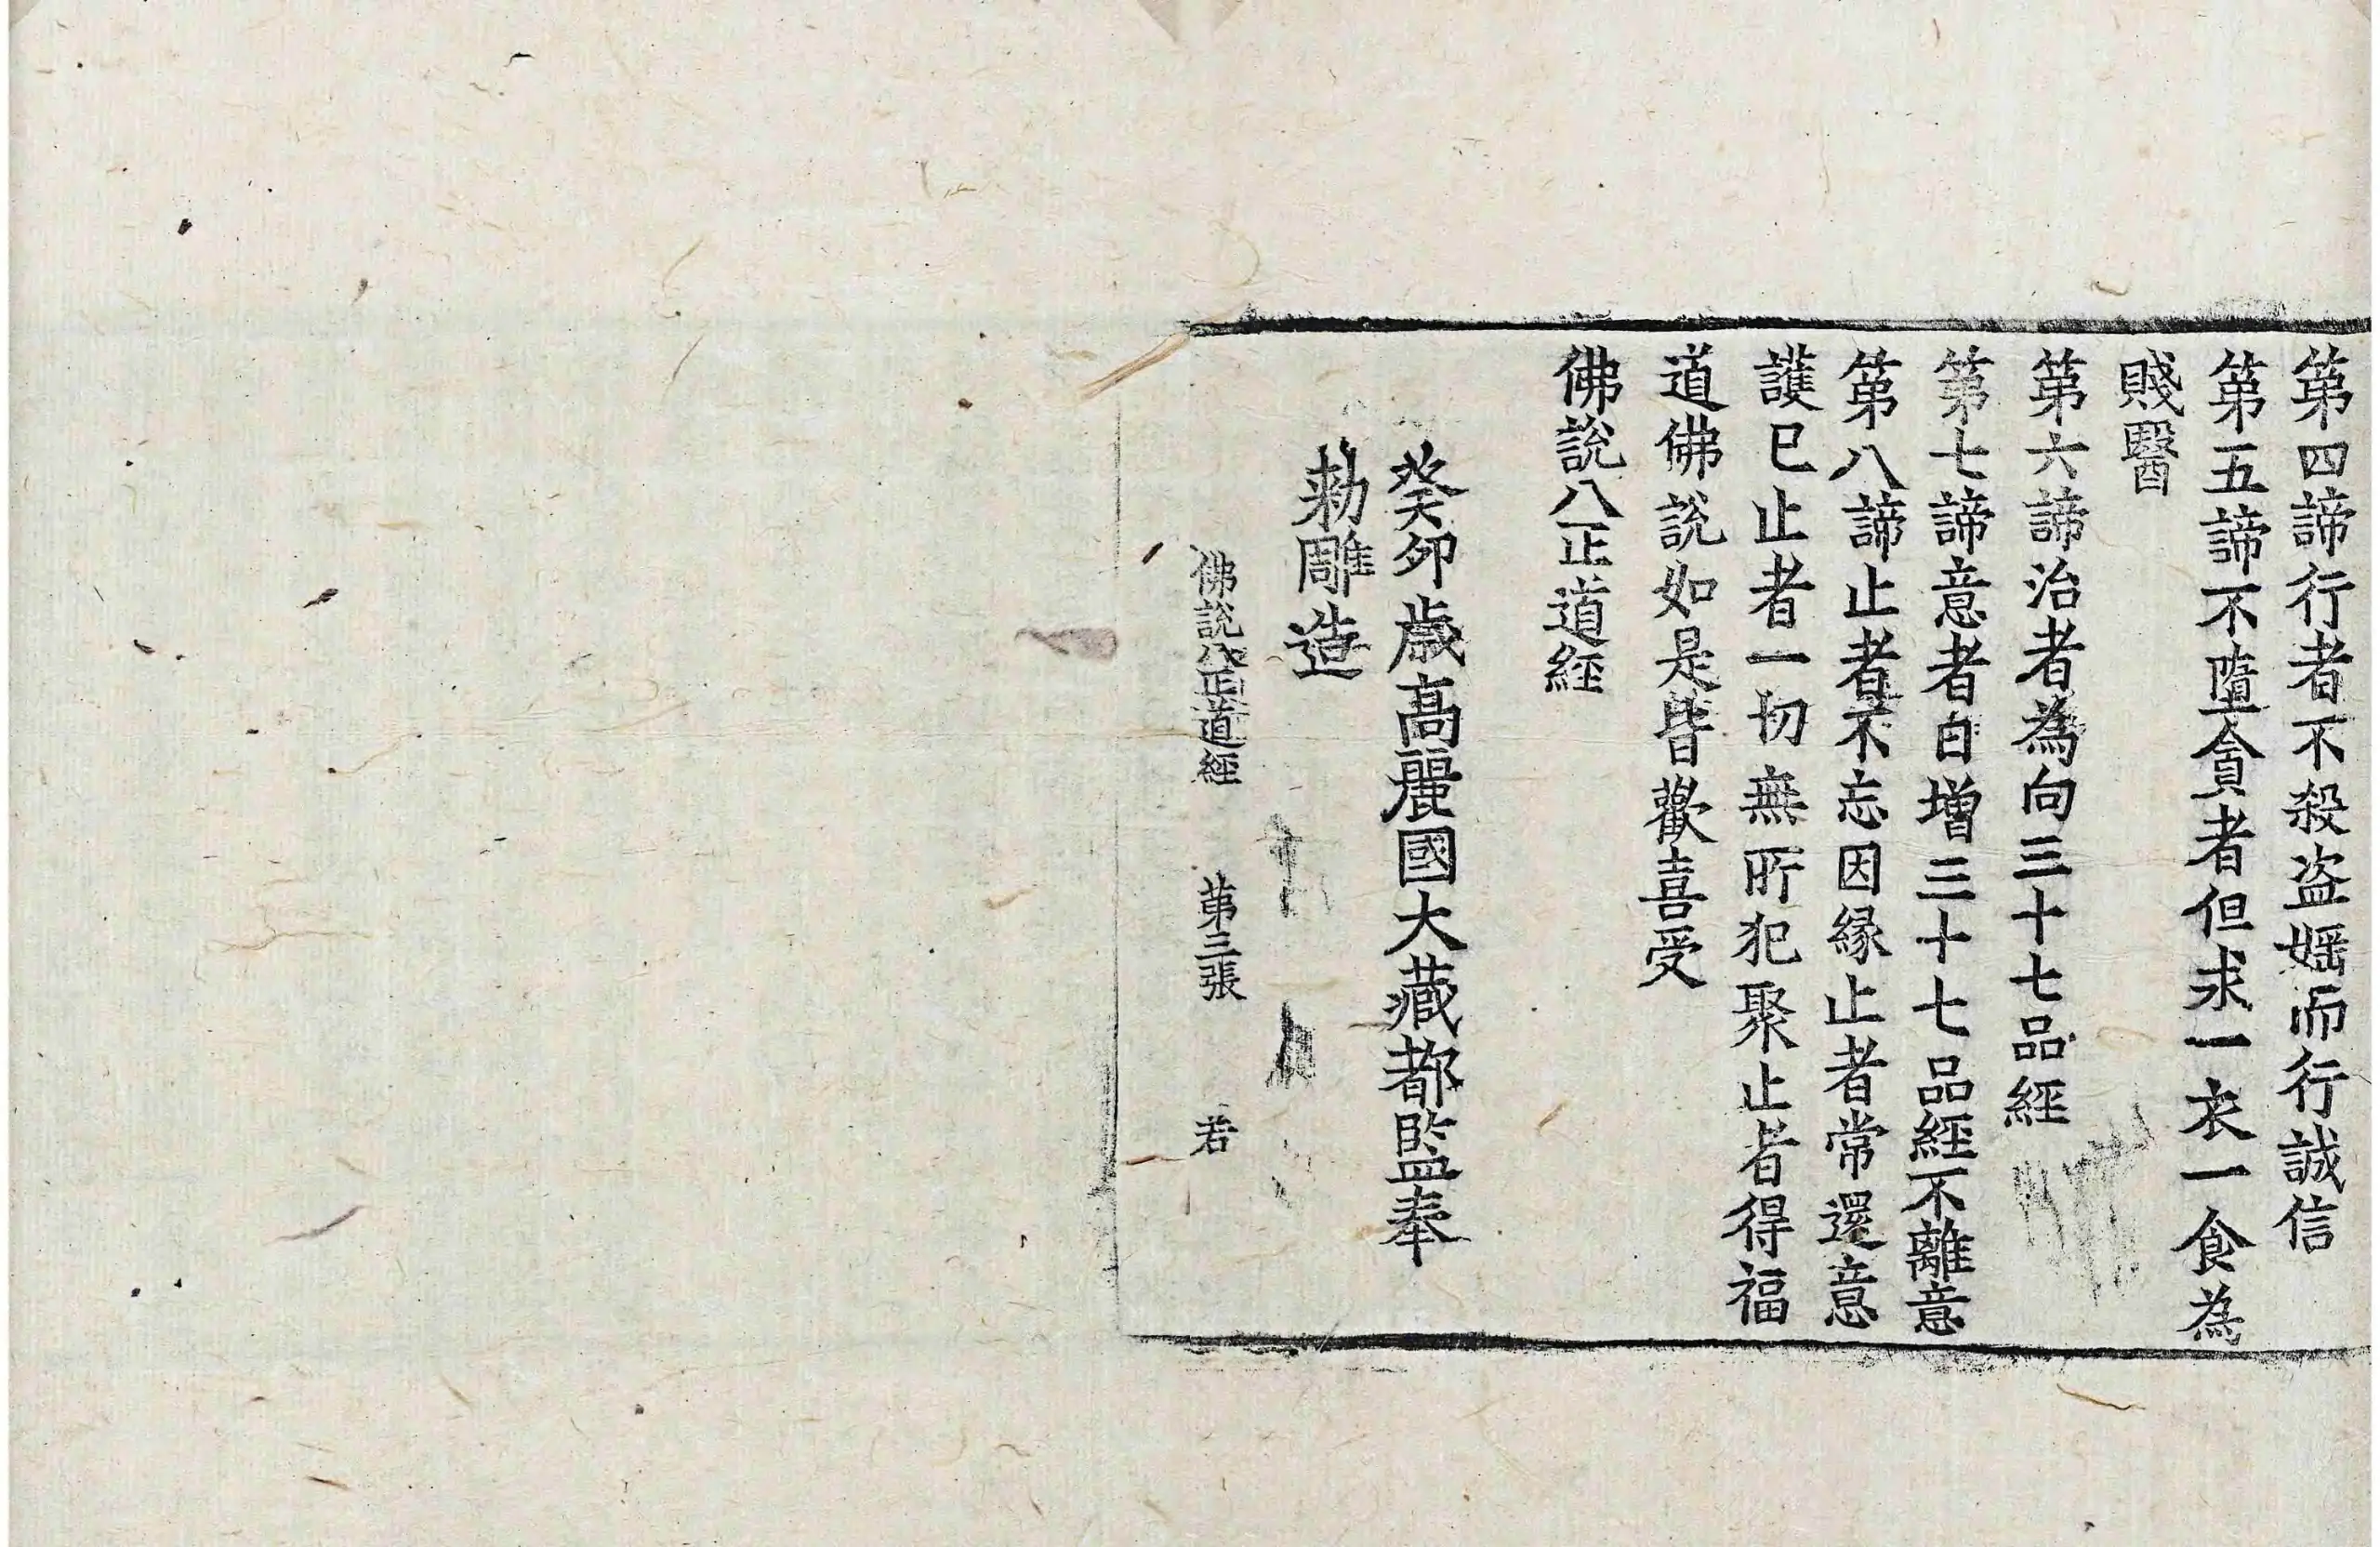 第四諦行者不殺盜婬而行誠信
第五諦不墮貪者但求一衣一食為
賤醫
第六諦治者為向三十七品經
第七諦意者日增三十七品經不離意
第八諦止者不忘因緣止者常還意
護已止者一切無所犯聚止者得福
道佛說如是皆歡喜受
佛說八正道經
癸卯歲高麗國大藏都監奉
勅雕造
佛說八正道經 第三張 若